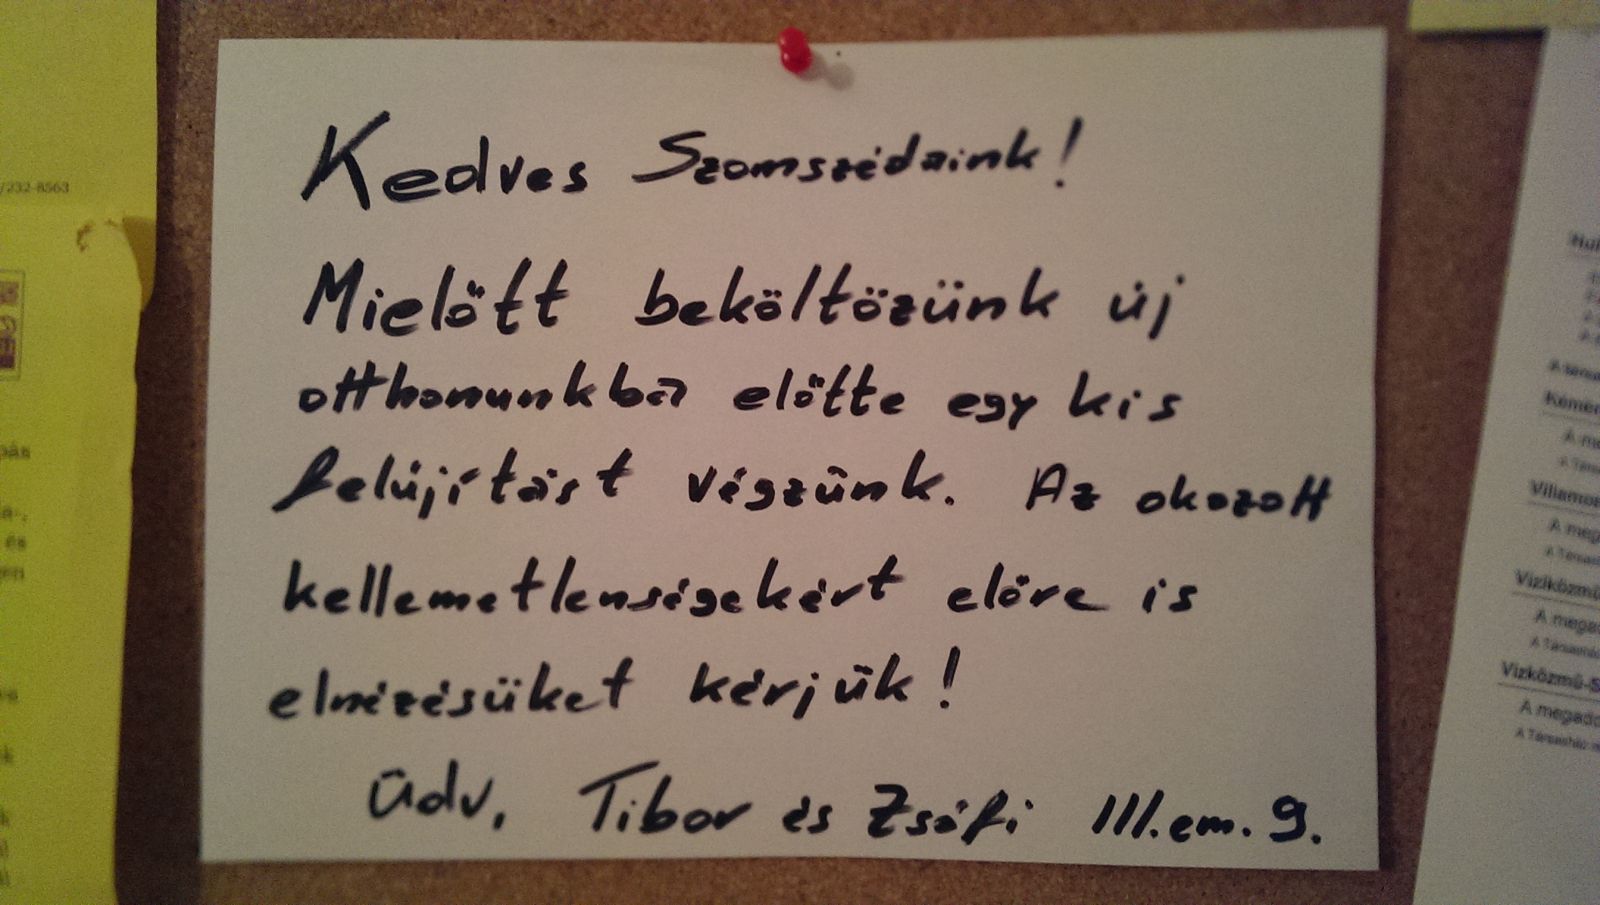 Kedves Szomszédaink!
Mielőtt beköltözünk új
otthonunkba előtte egy kis
felújítást végzünk. Az okozott
kellemetlenségekért előre is
elnézésüket kérjük!
Üdv, Tibor és Zsófi III.em. 9.
/232-8563
és
A megad
Villamos
A mega
A Társas
Víziközmű
A megad
A Társasház
Vízközmű-S
A megado
A Társasház